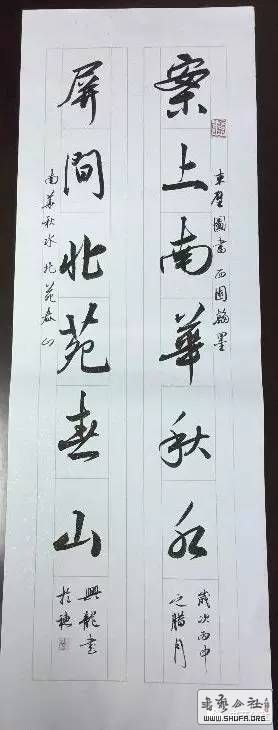 東壁圖書 西園翰墨
案上南華秋水
歲次丙申
之腊月
屏間北苑春山
南華秋水 北苑春山
興龍書
於穗
書藝公社
WWW.SHUFA.ORG